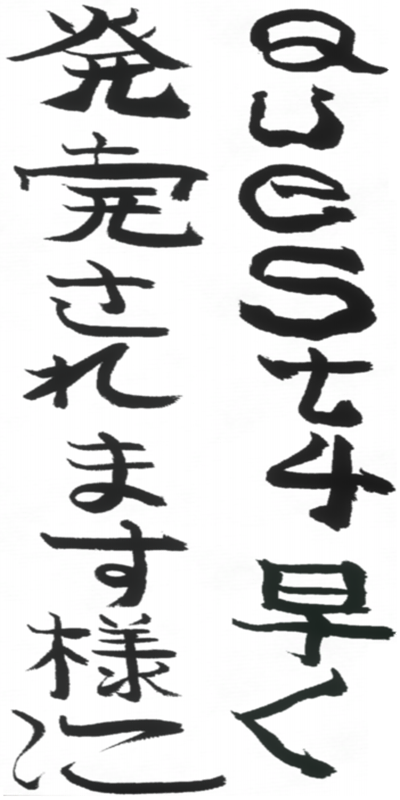 Quest4 早く
発売されます様に